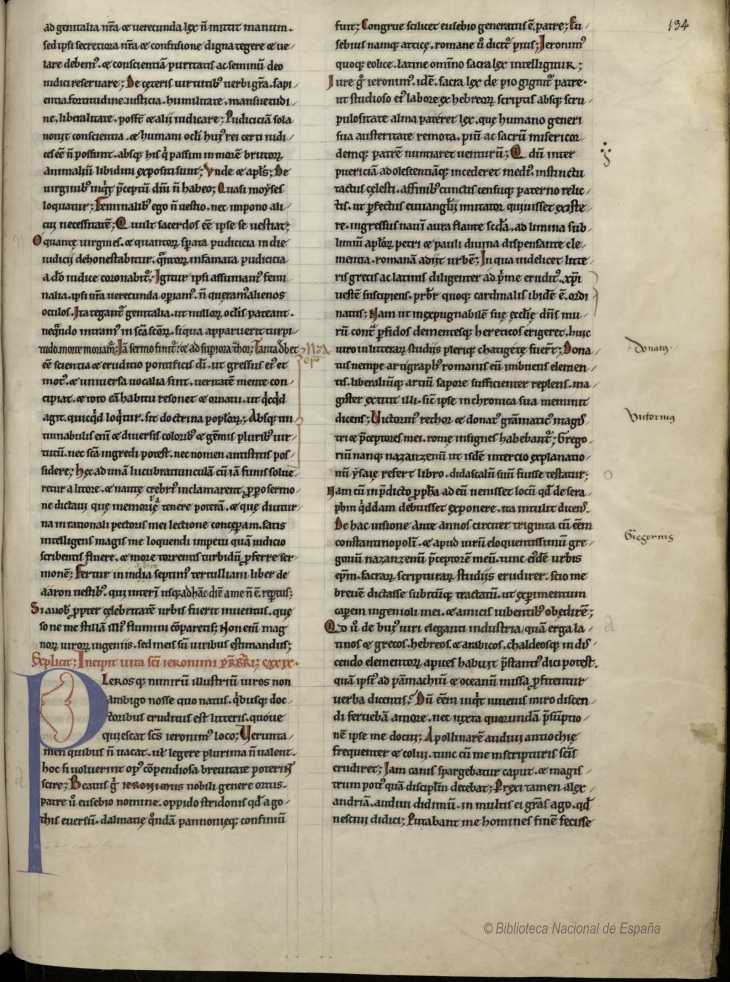 134
ad genitalia nr̄a ⁊ uerecunda lex ñ mittit manum.
sed ipsi secretiora nr̄a ⁊ confusione digna tegere ⁊ ue/
lare debem᷒. ⁊ conscientiā puritatis ac seminū deo
iudici reseruare; De ceteris uirtutib᷒ uerbi gr̄a. sapi/
entia. fortitudine. iusticia. humilitate. mansuetudi/
ne. liberalitate. possē ⁊ alij iudicare; Pudiciciā sola
nouit conscientia. ⁊ humani ocli hui᷒ rei certi iudi/
ces ee ñ possunt. absq; his q̇ passim in morē brutorꝝ
animaliū libidini expositi sunt; Vnde ⁊ apl̄s; De
uirginib᷒ inqt p̄ceptū dn̄i ñ habeo; Quasi moyses
loquatur; Feminalib᷒ ego ñ uestio. nec impono ali/
cui necessitatē; Qui uult sacerdos eē ipse se uestiat;
O quantę uirgines. ⁊ quantorꝝ sperata pudicicia in die
iudicij dehonestabitur. q̄ntorꝝ infamata pudicicia
a do iudice coronabit᷒; Igitur ipsi assumam᷒ femi/
nalia. ipsi nr̄a uerecunda opiam᷒. ñ queram᷒ alienos
oculos. Ita tegant᷒ genitalia. ut nullorꝝ oclis pateant.
ne q̄ndo intram᷒ in sc̄a sc̄orꝝ. si qua apparuerit turpi/
tudo. morte moriam᷒; Iā sermo finit᷒. ⁊ ad supiora t̄hor; Tanta dbet
ee scientia ⁊ eruditio pontificis dī. ut ⁊ gressus ei᷒ ⁊
mot᷒. ⁊ uniuersa uocalia sint. ueritatē mente con/
cipiat. ⁊ toto eā habitu resonet ⁊ ornatu. ut q̇cq̇d
agit. quicq̇d loq̄tur. sit doctrina poploꝝ; Absq; tin
tinnabulis eni ⁊ diuersis colorib᷒ ⁊ gemis pluribus uir/
tutū. nec sc̄a ingredi potest. nec nomen antistitis pos/
sidere; Hęc ad unā lucubratiunculā cū iā funis solue
retur a litore. ⁊ nautę crebri᷒ inclamarent. ppo sermo
ne dictaui quę memoria tenere poterā. ⁊ quę diutur
na in rationali pectoris mei lectione congesseram. satis
intelligens magis me loquendi impetu quā iudicio
scribentis fluere. ⁊ more torrentis turbidū pferre ser/
monē; Fertur in indice septimi tertulliani liber de
aaron uestib᷒. qui interi usq; ad hāc diē a me ñ e rept᷒;
Si a uob᷒ ppter celebritatē urbis fuerit inuentus. quę
so ne me stillā illi᷒ flumini cōparetis; Non eni mag
norꝝ uirorꝝ ingenijs. sed meis sū uiribus estimandus;
Explicit; Incipit uita sc̄i ieronimi pr̄sbri; cxxix.
PLerosq; nimirū illustriū uiros non
ambigo nosse quo natus. q̇busq; doc/
toribus eruditus est litteris. quoue
quiescat sc̄s ieronim᷒ loco; Verunta/
men quibus ñ uacat. uel legere plurima ñ ualent.
hoc si uoluerint op᷒ cōpendiosa breuitate poterunt
scire; Beatus g̊ ieronimus nobili genere ortus.
patre ū eusebio nomine. oppido stridonis qd̄ a go/
this euersū. dalmatię q̄ndā pannonięq; confiniū
fuit; Congrue scilicet eusebio generatus e᷒. patre; Eu/
sebius namq; attice. romane ū dictr̄ pius; Ieronim᷒
quoq; eolice. latine omīno sacra lex intelligitur;
Iure g̊ ieronim᷒. idē. sacra lex de pio gignit᷒ patre.
ut studioso ei᷒ labore ex hebreorꝝ scriptis absq; scru/
pulositate alma pateret lex. quę humano generi
sua austeritate remota. piū ac sacrū misericor
demq; patrē nuntiaret uenturū; Qd̄ dū inter
puericiā adolescentiāq; incederet medi᷒. instinctu
tactus celesti. affinib᷒ cunctis censuq; paterno relic/
tis. ut pfectus euanglij imitator quiuisset existe
re. ingressus nauī aura flante sc̄da. ad limina sub
limiū aplorꝝ petri ⁊ pauli diuina dispensante cle/
mentia. romanā adijt urbē; In qua uidelicet litte
ris grecis ac latinis diligenter ad prime erudit᷒. xpi
uestē suscipiens. prbr quoq; cardinalis ibidē e᷒. ordi
natus; Nam ut inexpugnabile suę ecclię dn̄s mu/
rū cont̄ pfidos dementesq; hereticos erigeret. huic
uiro in litterarū studijs pleriq; cathegetę fuert̄; Dona
tus nempe artigraph᷒ romanis eū imbuens elemen
tis. liberaliūq; artiū sapore sufficienter replens. ma/
gister extitit illi. sui ipse in chronica sua meminit
dicens; Victorin᷒ rethor ⁊ donat᷒ grāmatic᷒ magis/
tri ⁊ p̄ceptores mei. romę insignes habebant᷒; Grego/
riū nanq; nazanzenū ut isdē in tercio explanatio
nū ysaię refert libro. didascalū suū fuisse testatur;
Nam cū in p̄dicto ppha ad eū uenisset locū qd̄ de sera/
phin q̇ddam debuisset exponere. ita intulit dicens.
De hac uisione ante annos circiter triginta cū eem
constantinopoli. ⁊ apud uirū eloquentissimū gre/
goriū nazanzenū p̄ceptorē meū. tunc ei᷒dē urbis
epm̄. sacrarꝝ scripturarꝝ studijs erudirer. scio me
breuē dictasse subitūq; tractatū. ut ⁊ expimentum
caperem ingenioli mei. ⁊ amicis iubentib᷒ obedirē;
Qd̄ ū de hui᷒ uiri eleganti industria. quā erga la/
tinos ⁊ grecos. hebreos ⁊ arabicos. chaldeosq; in dis/
cendo elementorꝝ apices habuit p̄stantis᷒ dici potest.
quā ipsi᷒ ad pāmachiū ⁊ oceanū missa pfitentur
uerba dicentis; Dū eēm inqt iuuenis miro discen
di feruebā amore. nec iuxta quorundā p̄sūptio/
nē ipse me docui; Apollinarē audiui antiochię
frequenter ⁊ colui. tunc cū me in scripturis sc̄is
erudiret; Iam canis spargebatur caput. ⁊ magis
trum poti᷒ quā discipulū decebat; Prexi tamen alex/
andriā. audiui didimū. in multis ei grās ago. qd̄
nesciui didici; Putabant me homines finē fecisse
Donatus.
Victorinus
Gregorius
© Biblioteca Nacional de España